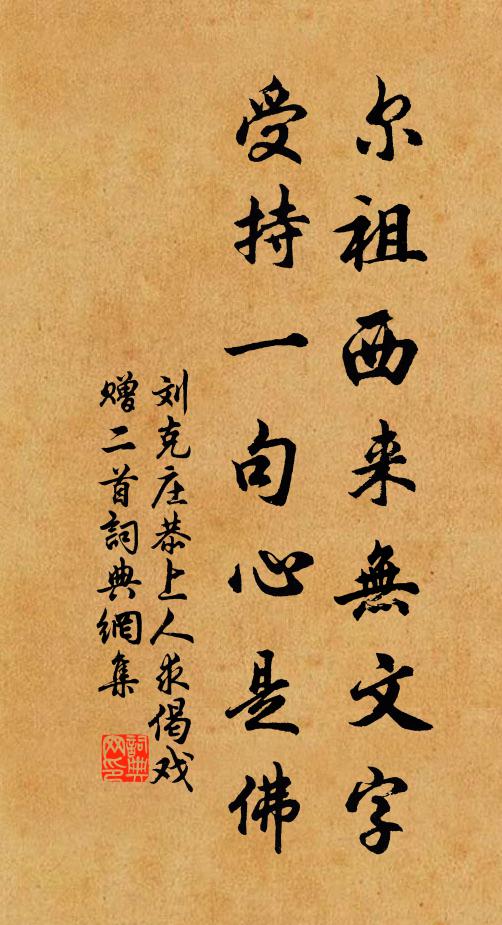 尔祖西来無文字
受持一句心是佛
刘克庄恭上人求偈戏
赠二首詞典網集
詞典
网印